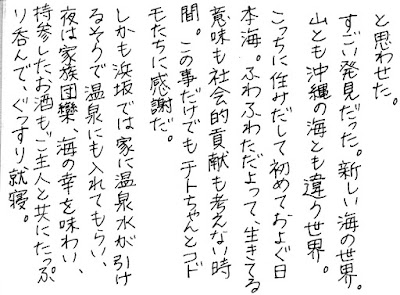 と思わせた。
すごい発見だった。新しい海の世界。
山とも沖縄の海とも違う世界。
こっちに住みだして初めておよぐ日
本海。ふわふわただよって、生きてる
意味も社会的貢献も考えない時
間。この事だけでもチトちゃんとコド
モたちに感謝だ。
しかも浜坂では家に温泉水が引け
るそうで温泉にも入れてもらい、
夜は家族団欒、海の幸を味わい、
持参したお酒もご主人と共にたっぷ
リ呑んで、ぐっすり就寝。